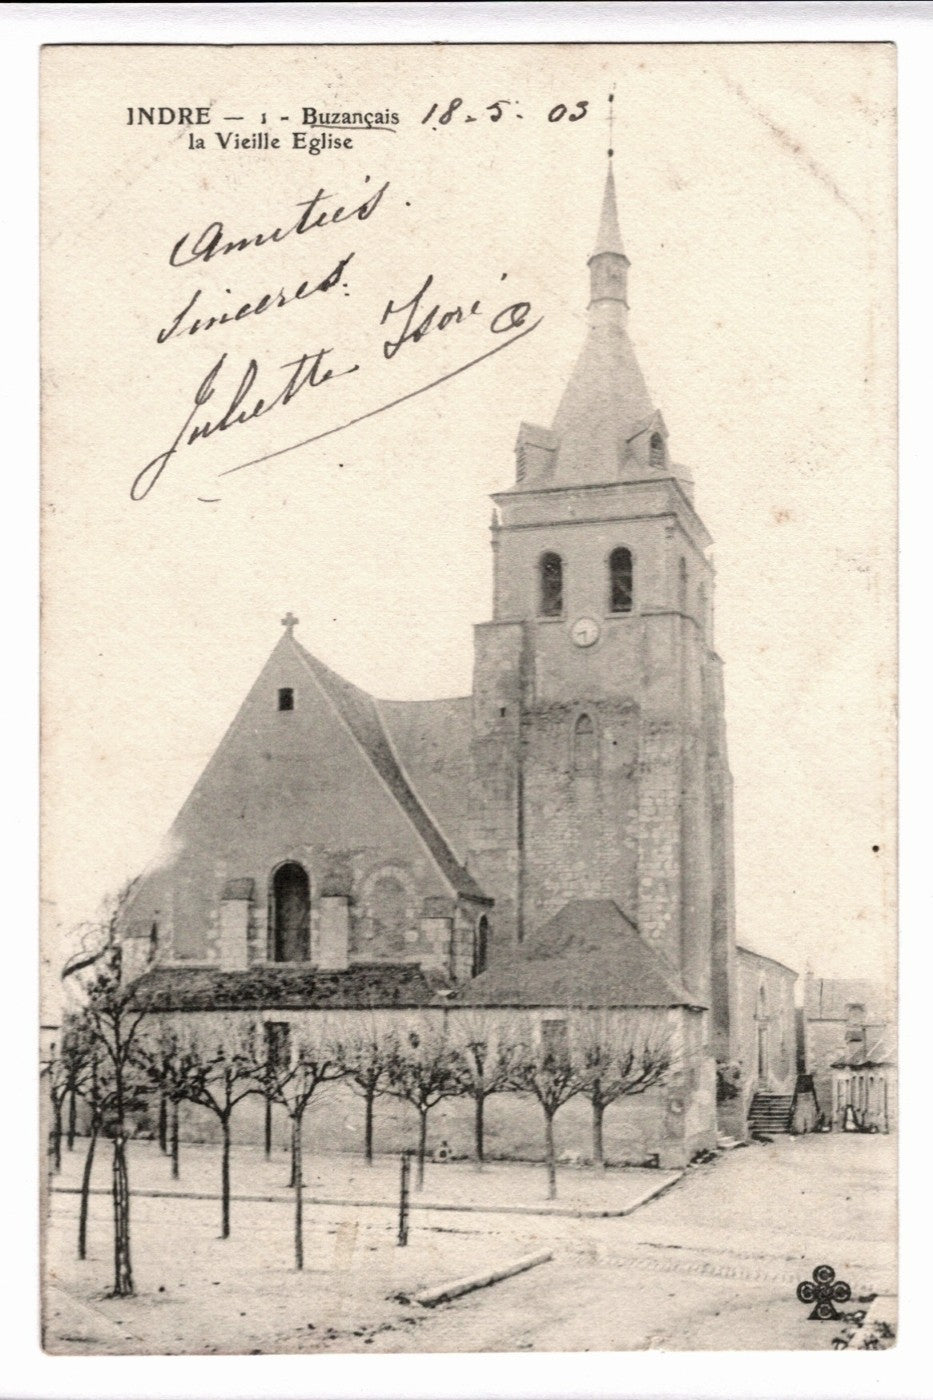 INDRE — 1 - Buzançais 18-5-03
la Vieille Eglise
Amitiés
sincères.
Juliette Isoré